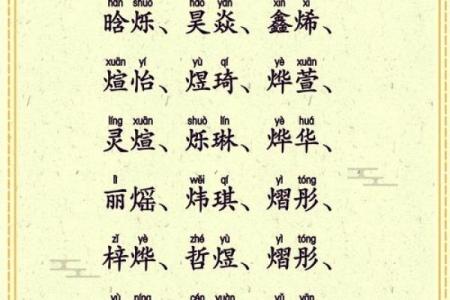 hán shuò hào yàn xīn xī
晗烁、昊焱、鑫烯、
xuān yí yù qí yè xuān
煊怡、煜琦、烨萱、
líng xuān shuò lín yè huá
灵煊、烁琳、烨华、
lì wěi qí yì tóng
丽熠、炜琪、熠彤、
zǐ yè zhé yù yì tóng
梓烨、哲煜、熠彤、
yù níng cén xuān yǔ xuān